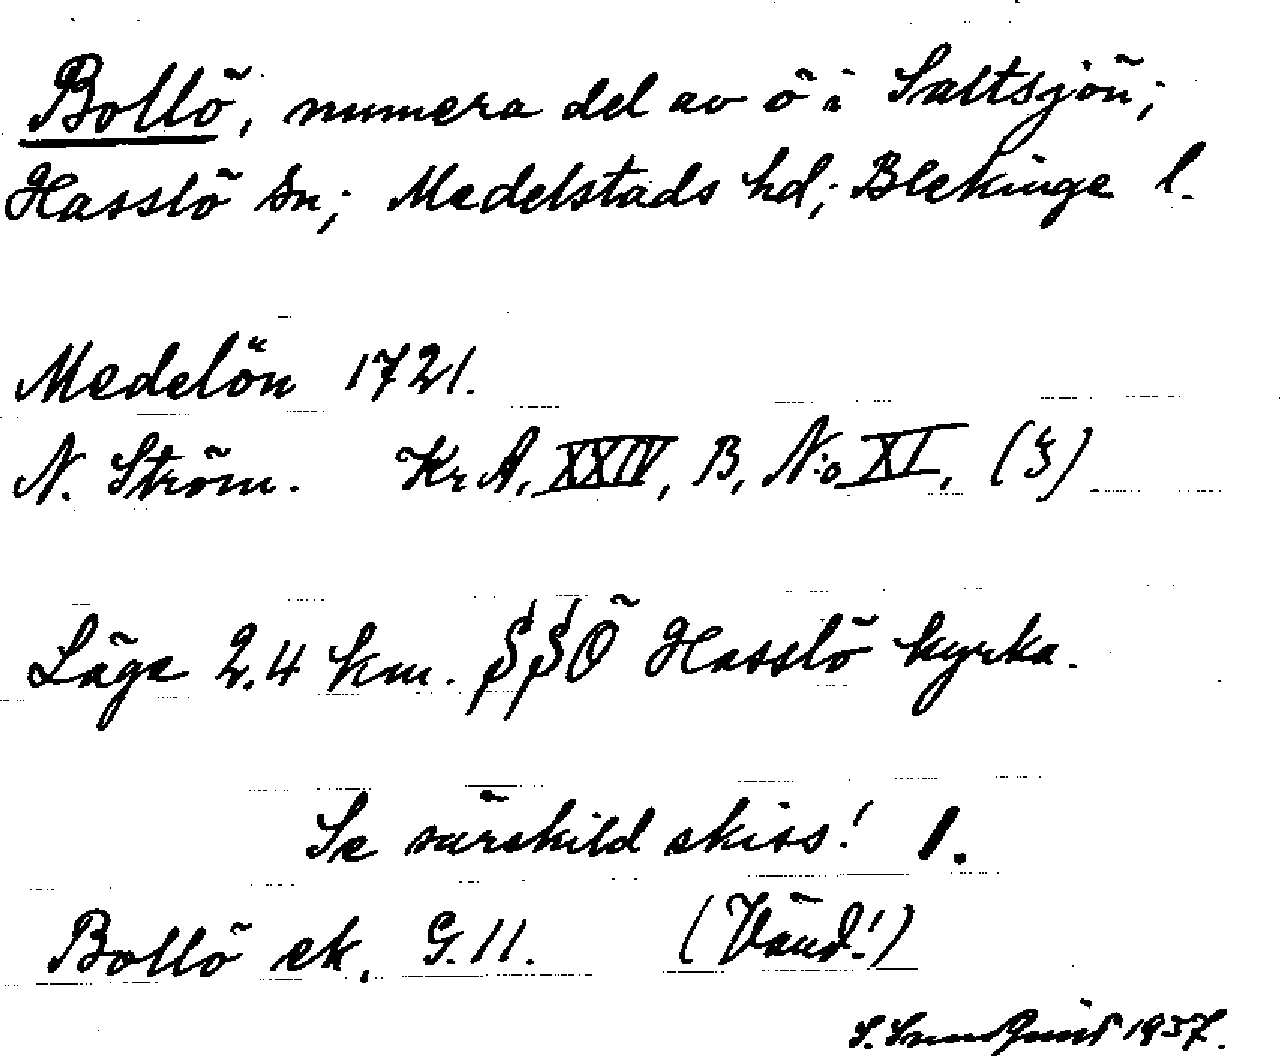 Bollö, numera del av ö i Saltsjön;
Hasslö sn; Medelstads hd; Blekinge l.
Medelön 1721.
N. Ström. Kr A, XXIV, B, N:o XI, (3)
Läge 2.4 km. SSÖ Hasslö kyrka.
Se särskild skiss! 1.
Bollö ek. G.11. (Vänd!)
S. Sundquist 1937.